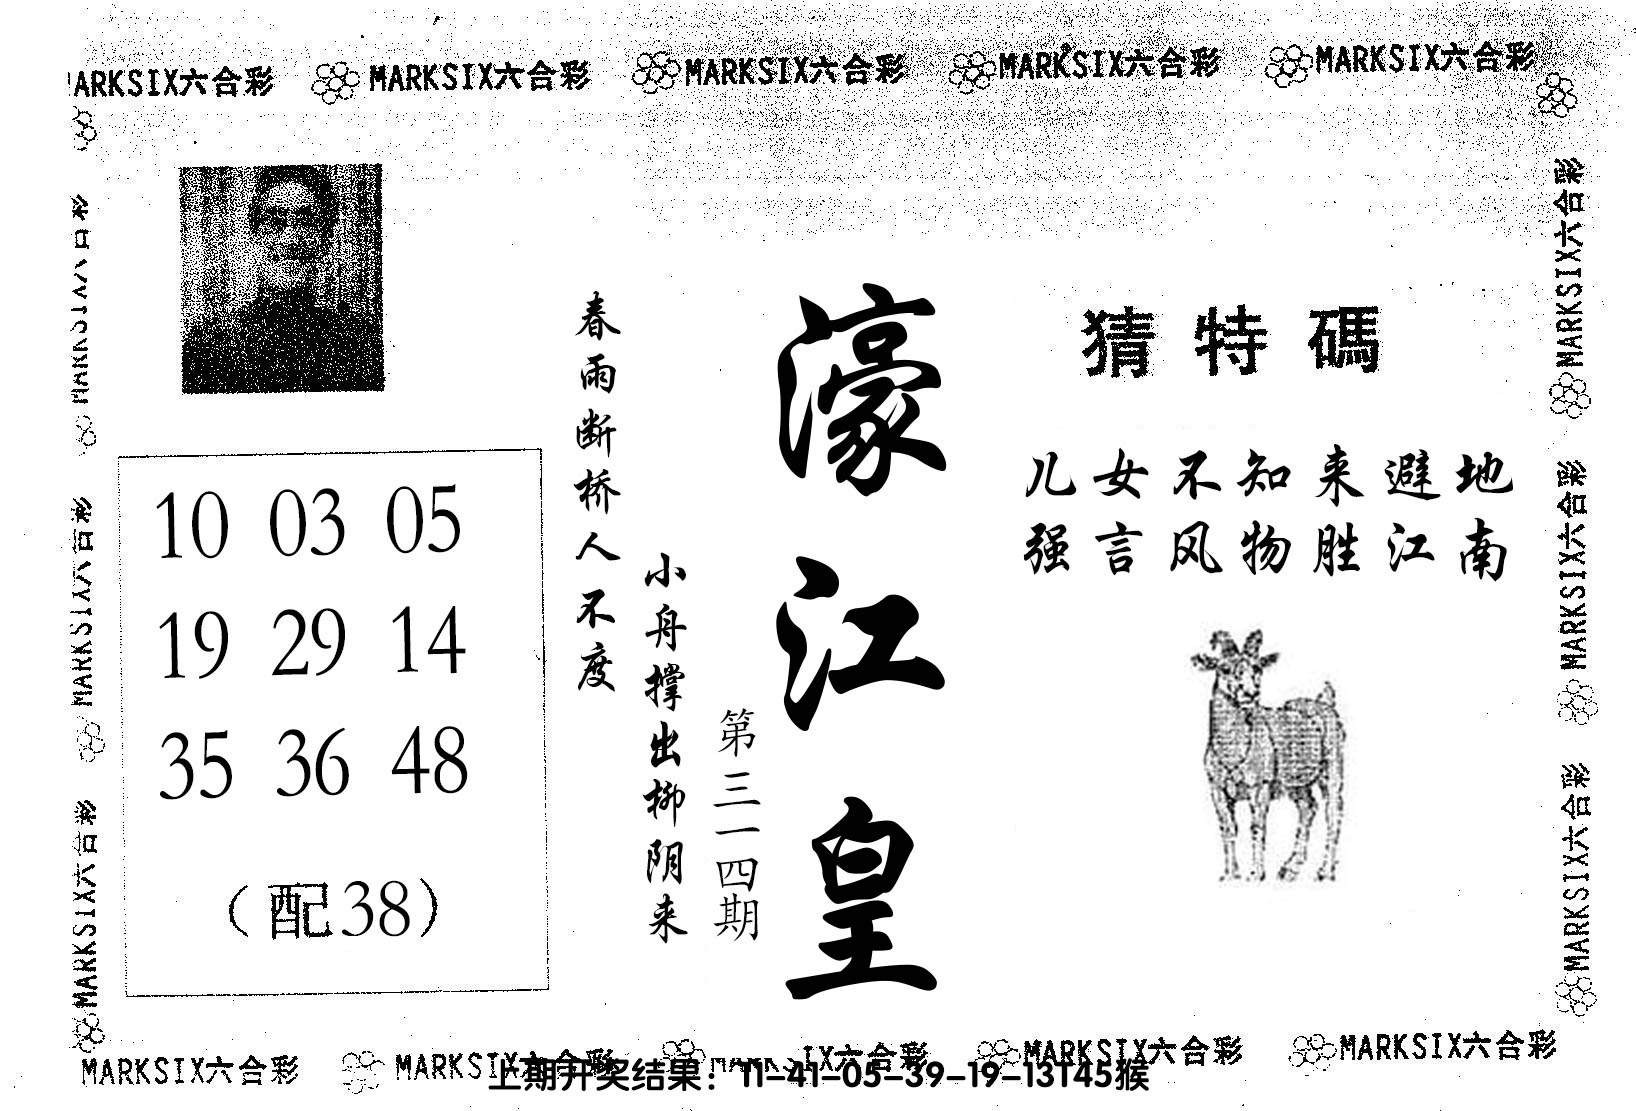 MARKSIX六合彩 MARKSIX六合彩 MARKSIX六合彩 MARKSIX六合彩 MARKSIX六合彩
MARKSIX六合彩
MARKSIX六合彩
MARKSIX六合彩
10 03 05
19 29 14
35 36 48
(配38)
春雨断桥人不度
小舟撑出柳阴来
第三一四期
濠江皇
猜特碼
儿女不知来避地
强言风物胜江南
MARKSIX六合彩
MARKSIX六合彩
MARKSIX六合彩
MARKSIX六合彩 MARKSIX六合彩 MARKSIX六合彩 MARKSIX六合彩 MARKSIX六合彩
上期开奖结果：11-41-05-39-19-13T45猴